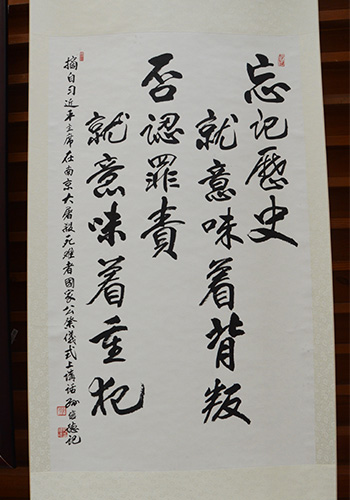 忘记歷史
就意味着背叛
否認罪責
就意味着重犯
摘自习近平主席在南京大屠殺死难者國家公祭儀式上講话